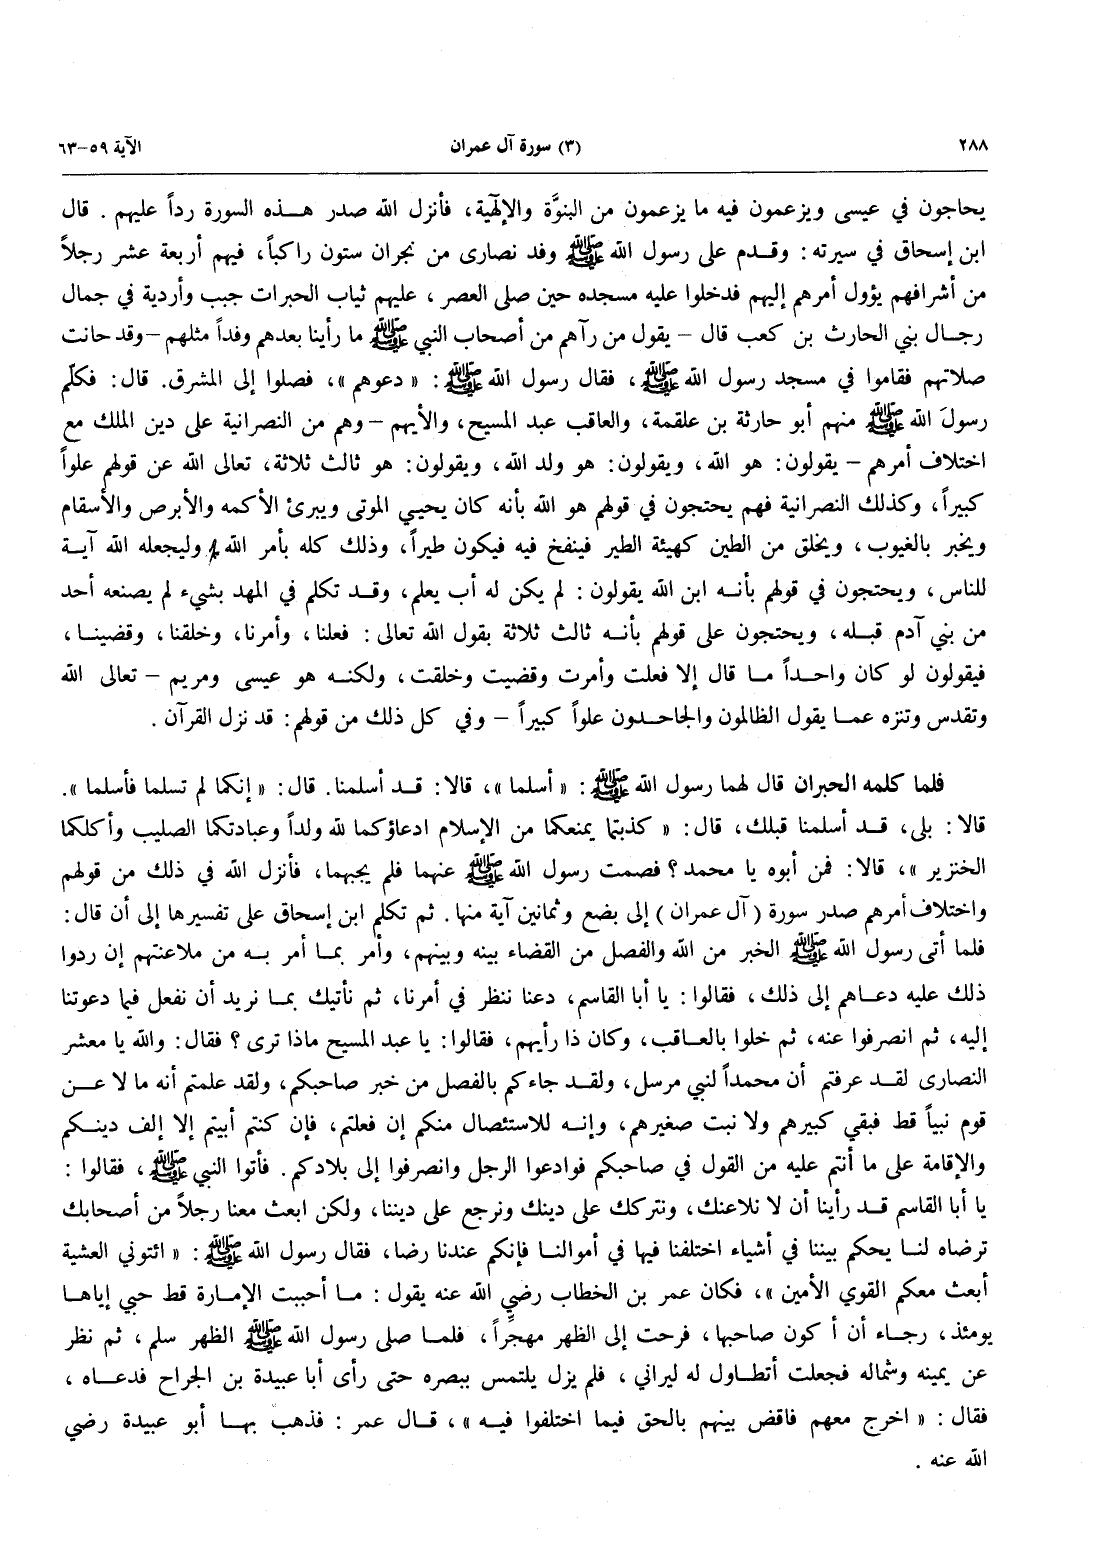 ٢٨٨ (٣) سورة آل عمران الآية ٥٩-٦٣
يحاجون في عيسى ويزعمون فيه ما يزعمون من البنوَّة والإلهية، فأنزل الله صدر هذه السورة رداً عليهم . قال
ابن إسحاق في سيرته : وقدم على رسول الله ﷺ وفد نصارى من نجران ستون راكباً، فيهم أربعة عشر رجلاً
من أشرافهم يؤول أمرهم إليهم فدخلوا عليه مسجده حين صلى العصر ، عليهم ثياب الحبرات جبب وأردية في جمال
رجال بني الحارث بن كعب قال – يقول من رآهم من أصحاب النبي ﷺ ما رأينا بعدهم وفداً مثلهم – وقد حانت
صلاتهم فقاموا في مسجد رسول الله ﷺ ، فقال رسول الله ﷺ : « دعوهم »، فصلوا إلى المشرق. قال: فكلّم
رسولَ الله ﷺ منهم أبو حارثة بن علقمة، والعاقب عبد المسيح، والأيهم – وهم من النصرانية على دين الملك مع
اختلاف أمرهم – يقولون: هو الله، ويقولون: هو ولد الله، ويقولون: هو ثالث ثلاثة، تعالى الله عن قولهم علواً
كبيراً، وكذلك النصرانية فهم يحتجون في قولهم هو الله بأنه كان يحيي الموتى ويبرئ الأكمه والأبرص والأسقام
ويخبر بالغيوب، ويخلق من الطين كهيئة الطير فينفخ فيه فيكون طيراً، وذلك كله بأمر الله، وليجعله الله آية
للناس، ويحتجون في قولهم بأنه ابن الله يقولون : لم يكن له أب يعلم، وقد تكلم في المهد بشيء لم يصنعه أحد
من بني آدم قبله، ويحتجون على قولهم بأنه ثالث ثلاثة بقول الله تعالى: فعلنا، وأمرنا، وخلقنا، وقضينا،
فيقولون لو كان واحداً ما قال إلا فعلت وأمرت وقضيت وخلقت، ولكنه هو عيسى ومريم – تعالى الله
وتقدس وتنزه عما يقول الظالمون والجاحدون علواً كبيراً – وفي كل ذلك من قولهم: قد نزل القرآن .
فلما كلمه الحبران قال لهما رسول الله ﷺ : « أسلما »، قالا: قد أسلمنا. قال: « إنكما لم تسلما فأسلما ».
قالا: بلى، قد أسلمنا قبلك، قال: « كذبتما يمنعكما من الإسلام ادعاؤكما لله ولداً وعبادتكما الصليب وأكلكما
الخنزير »، قالا: فمن أبوه يا محمد؟ فصمت رسول الله ﷺ عنهما فلم يجبهما، فأنزل الله في ذلك من قولهم
واختلاف أمرهم صدر سورة (آل عمران) إلى بضع وثمانين آية منها. ثم تكلم ابن إسحاق على تفسيرها إلى أن قال:
فلما أتى رسول الله ﷺ الخبر من الله والفصل من القضاء بينه وبينهم، وأمر بما أمر به من ملاعنتهم إن ردوا
ذلك عليه دعاهم إلى ذلك، فقالوا: يا أبا القاسم، دعنا ننظر في أمرنا، ثم نأتيك بما نريد أن نفعل فيما دعوتنا
إليه، ثم انصرفوا عنه، ثم خلوا بالعاقب، وكان ذا رأيهم، فقالوا: يا عبد المسيح ماذا ترى؟ فقال: والله يا معشر
النصارى لقد عرفتم أن محمداً لنبي مرسل، ولقد جاءكم بالفصل من خبر صاحبكم، ولقد علمتم أنه ما لاعن
قوم نبياً قط فبقي كبيرهم ولا نبت صغيرهم، وإنه للاستئصال منكم إن فعلتم، فإن كنتم أبيتم إلا إلف دينكم
والإقامة على ما أنتم عليه من القول في صاحبكم فوادعوا الرجل وانصرفوا إلى بلادكم. فأتوا النبي ﷺ، فقالوا:
يا أبا القاسم قد رأينا أن لا نلاعنك، ونتركك على دينك ونرجع على ديننا، ولكن ابعث معنا رجلاً من أصحابك
ترضاه لنا يحكم بيننا في أشياء اختلفنا فيها في أموالنا فإنكم عندنا رضا، فقال رسول الله ﷺ : « ائتوني العشية
أبعث معكم القوي الأمين »، فكان عمر بن الخطاب رضي الله عنه يقول: ما أحببت الإمارة قط حبي إياها
يومئذ، رجاء أن أكون صاحبها، فرحت إلى الظهر مهجِّراً، فلما صلى رسول الله ﷺ الظهر سلم، ثم نظر
عن يمينه وشماله فجعلت أتطاول له ليراني، فلم يزل يلتمس ببصره حتى رأى أبا عبيدة بن الجراح فدعاه،
فقال: « اخرج معهم فاقض بينهم بالحق فيما اختلفوا فيه »، قال عمر: فذهب بها أبو عبيدة رضي
الله عنه .